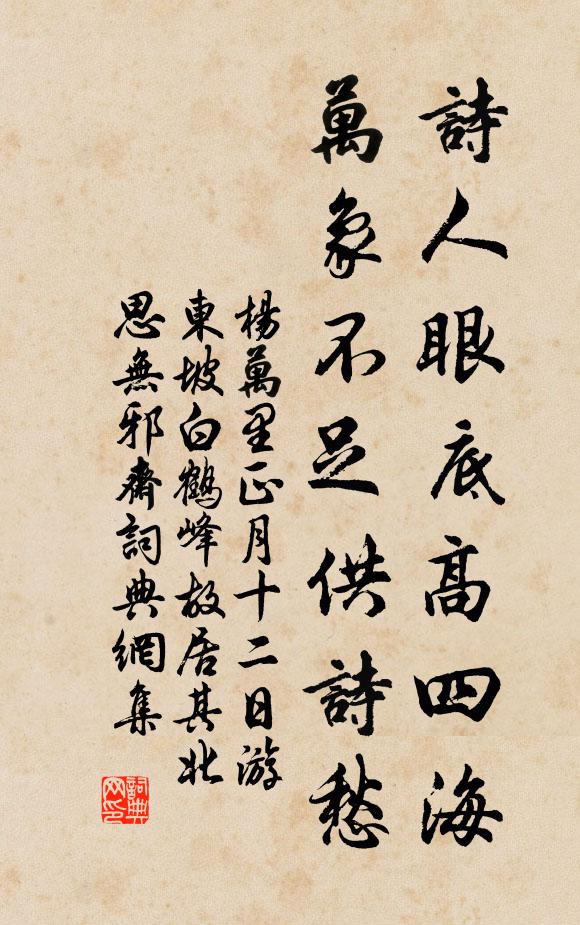 詩人眼底高四海
萬象不足供詩愁
楊萬里正月十二日游
東坡白鶴峰故居其北
思無邪齋詞典網集
詞典网印